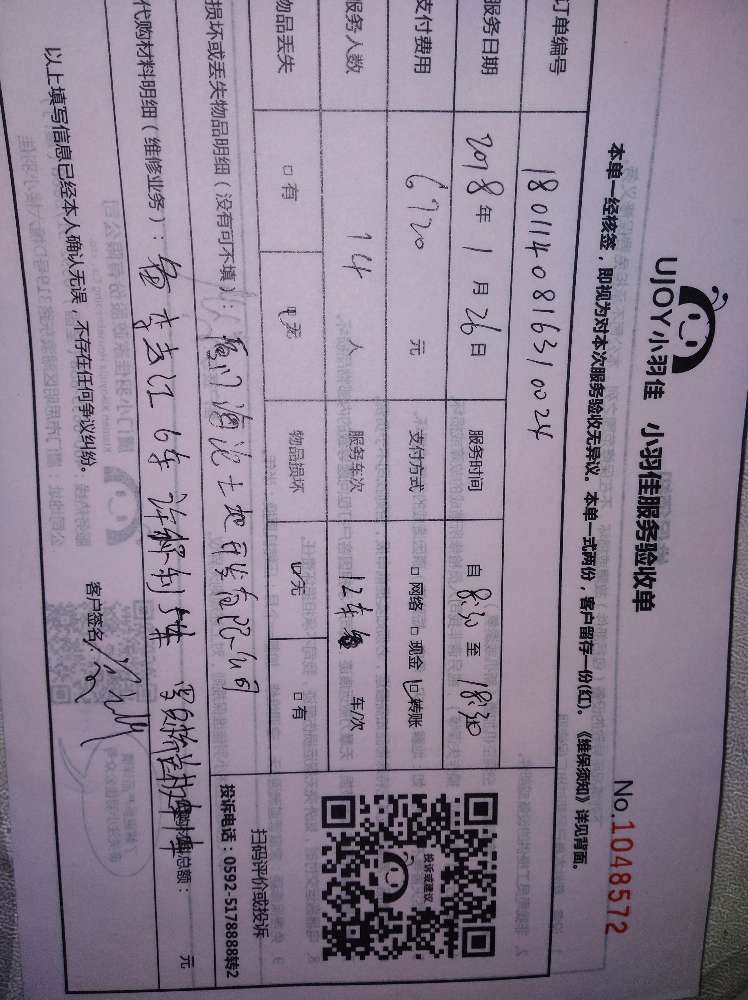 UJOY小羽佳 小羽佳服务验收单
No.1048572
本单一经核签，即视为对本次服务验收无异议。本单一式两份，客户留存一份(红)。《维保须知》详见背面。
订单编号 180114081631 0024
服务日期 2018年1月26日 服务时间 自8:30至18:30
支付费用 6720元 支付方式 □网络 □现金 ☑转账
服务人数 14人 服务车次 12车 车/次
物品丢失 □有 ☑无 物品损坏 ☑无 □有
损坏或丢失物品明细（没有可不填）：厦门海沧土地开发有限公司
代购材料明细（维修业务）： 6车 代购材料总额： 元
以上填写信息已经本人确认无误，不存在任何争议纠纷。
客户签名
投诉或建议
扫码评价或投诉
投诉电话：0592-5178888转2